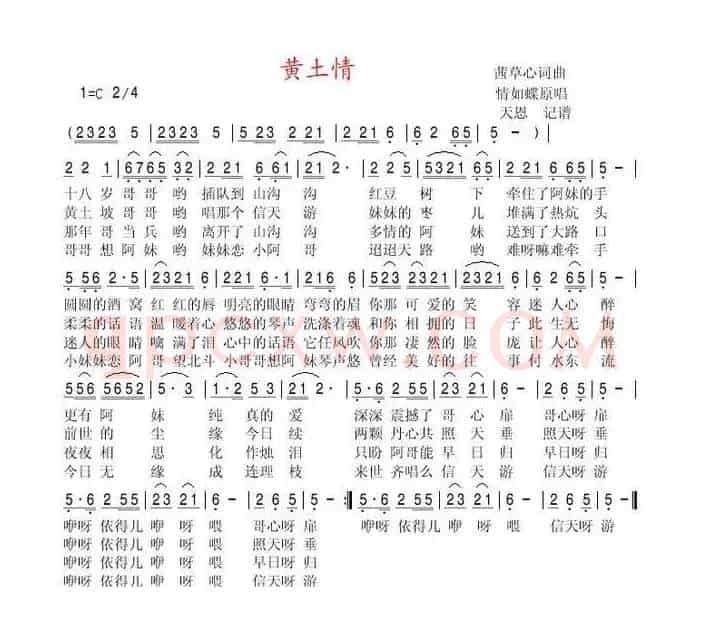 黄土情
茜草心词曲
1=C 2/4
情如蝶原唱
天恩 记谱
(2323 5 | 2323 5 | 2 23 2 21 | 6 2 65 | 5 - ) |
2 2 1 | 6765 32 | 2 221 6 61 | 21 2· | 2 25 | 5321 6·5 | 6 2 21 65 | 5 - |
十八 岁 哥哥 哟 插队到 山沟 沟 红豆 树 下 牵住了阿妹的手
黄土 坡 哥哥 哟 唱那个 信天 游 妹妹的 枣 儿 堆满了热炕 头
那年 哥 当兵 哟 离开了 山沟 沟 多情的 阿 妹 送到了大路 口
哥哥 想 阿妹 哟 妹妹恋 小阿 哥 迢迢天 路 哟 难呀嘛难牵 手
圆圆的酒 窝 红 红的唇 明亮的眼睛 弯弯的眉 你那 可 爱的 笑 容 迷 人心 醉
柔柔的话 语 温 暖着心 悠悠的琴声 洗涤着魂 和你 相 拥的 日 子 此 生无 悔
迷人的眼 睛 噙 满了泪 心中的话语 它任风吹 你那 凄 然的 脸 庞 让 人心 醉
小妹妹恋 阿 哥 望北斗 小哥哥想阿 妹琴声悠 曾经 美 好的 往 事 付 水东 流
556 5652 | 5·3 | 5·3 | 2·1 | 2 - |
更有 阿 妹 纯 真的 爱 深深 震撼了 哥 心 扉 哥心呀 扉
前世 的 尘 缘 今日 续 两颗 丹心共 照 天 垂 照天呀 垂
夜夜 相 思 化 作烛 泪 只盼 阿哥能 早 日 归 早日呀 归
今日 无 缘 成 连理 枝 来世 齐唱么 信 天 游 信天呀 游
5·6 2 55 | 23 21 | 6 - | 2 6 5 | 5 - :‖ 5·6 2 55 | 23 21 | 6 - | 2 6 5 | 5 - ‖
咿呀 依得儿 咿 呀 喂 哥心呀 扉 咿呀 依得儿 咿 呀 喂 信天呀 游
咿呀 依得儿 咿 呀 喂 照天呀 垂
咿呀 依得儿 咿 呀 喂 早日呀 归
咿呀 依得儿 咿 呀 喂 信天呀 游